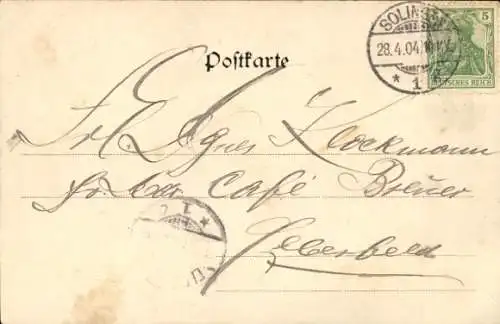 Postkarte
SOLINGEN
28.4.04
* 1
5
DEUTSCHES REICH
Frl. Agnes Klockmann
Café Breuer
Elberfeld